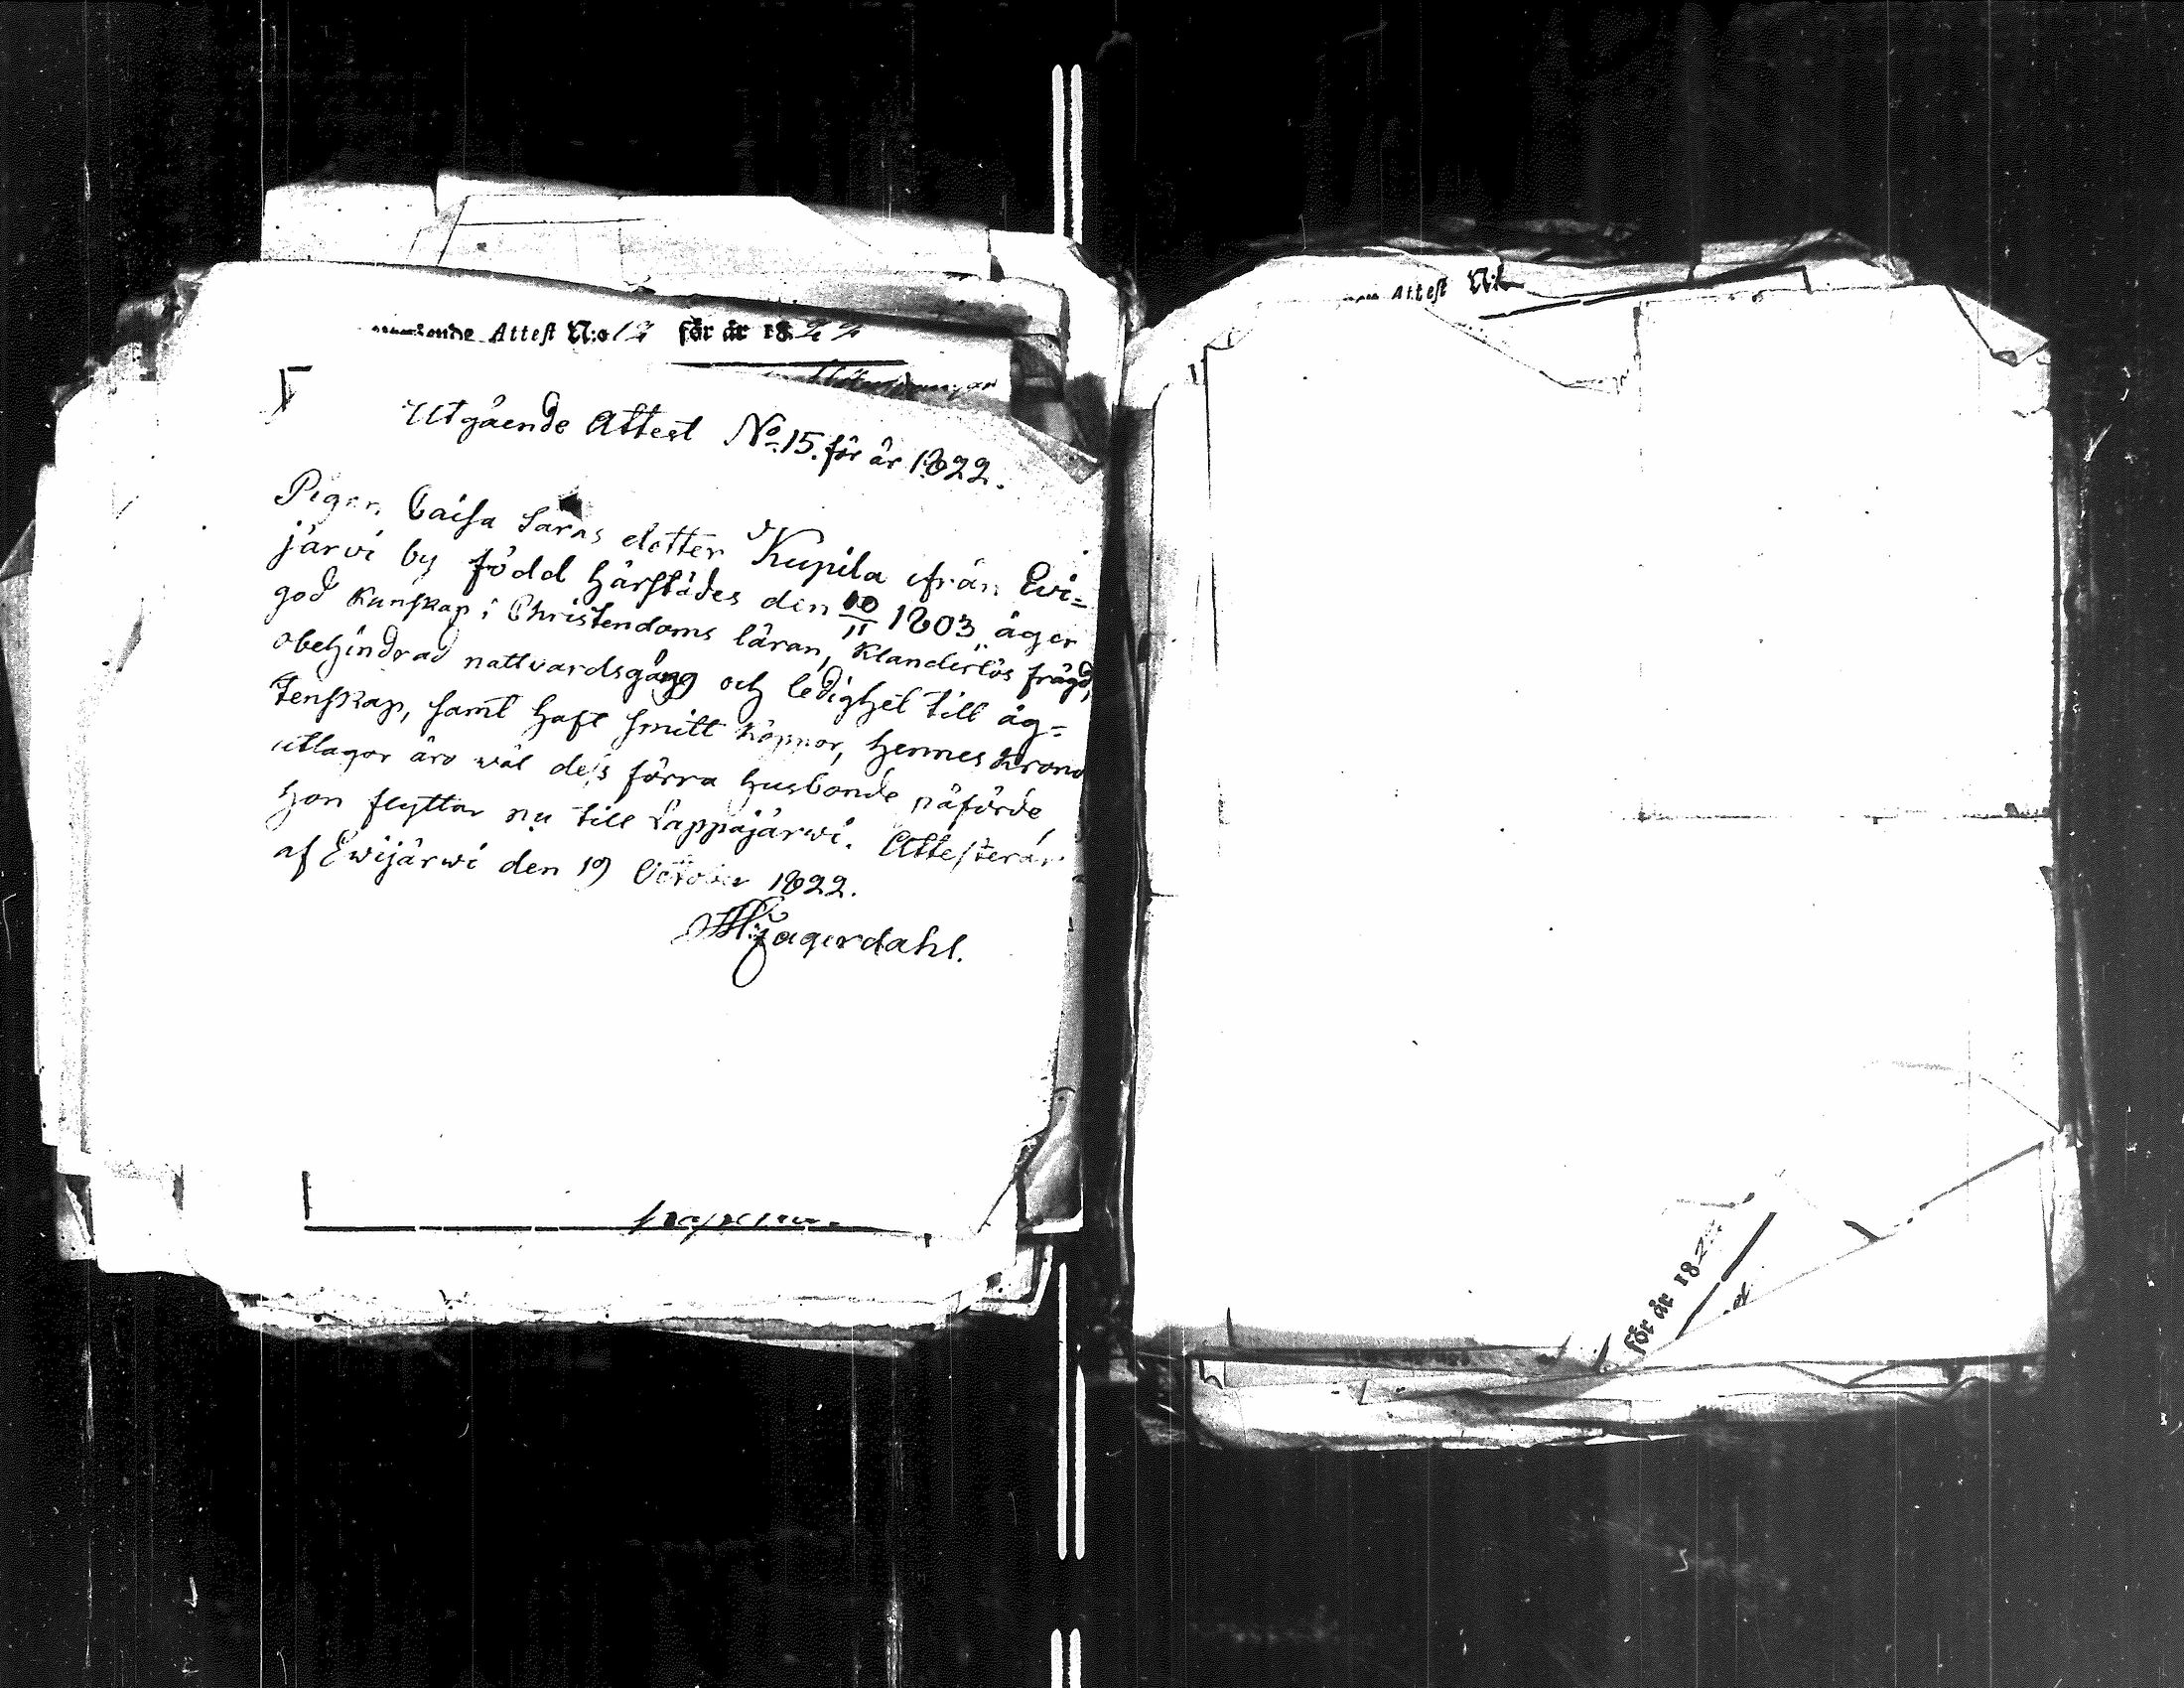 Attest N:o 12 för år 1822
Utgående Attest No. 15. för år 1822.
Pigan, Caisa Saras dotter Kupila ifrån Ewi=
järvi by född härstädes den 10/11 1803 äger
god kunskap i Christendoms läran, klanderlös frägd,
obehindrad nattvardsgång och ledighet till äg=
tenskap, samt haft smitt koppor, hennes krono
utlagor äro wäl dess förra husbonde påförde,
hon flyttar nu till Lappajärwi. Attesterar
af Ewijärwi den 19 October 1822.
Fagerdahl.
Attest N:o
för år 182